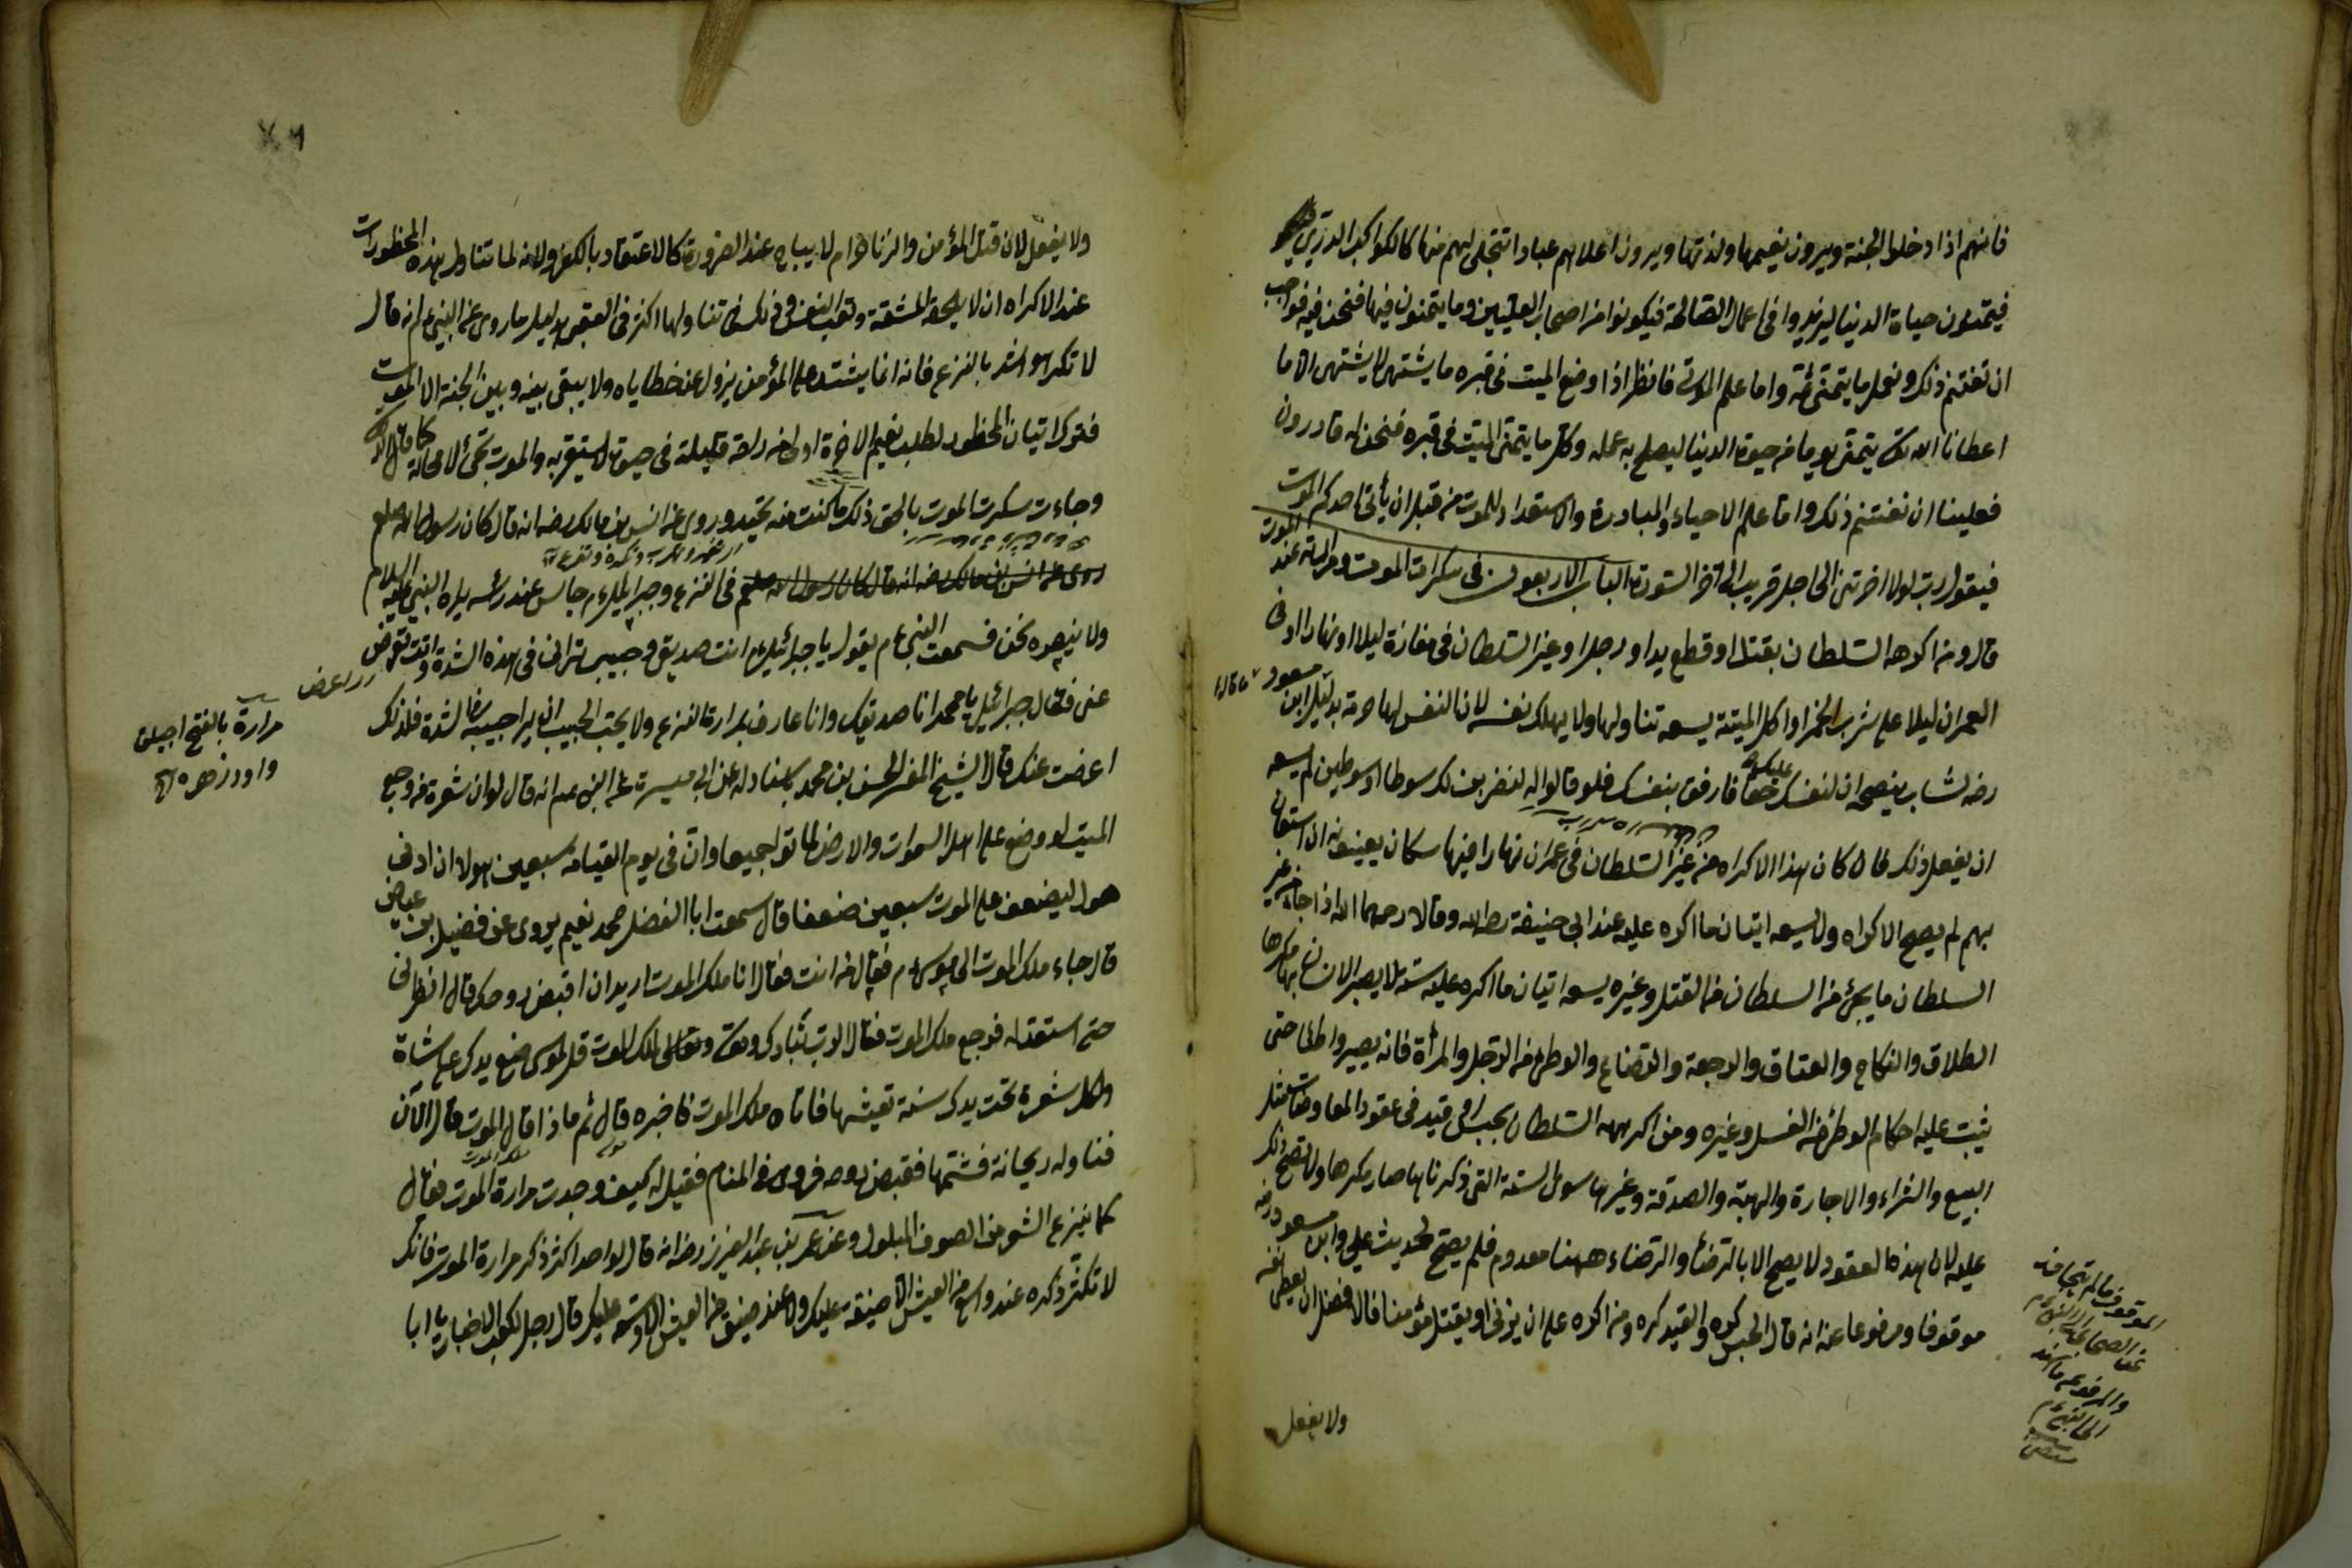 فانهم اذا دخلوا الجنة ويرون نعيمها ولذتها ويرون اعلاهم عبادا تتجلى لهم منها كالكواكب الدري
فيتمنون حياة الدنيا ليزيدوا فى اعمال الصالحة فيكونوا من اصحاب العليين وما يتمنون فيها فنحن فيه فواجب
ان نغتنم ذلك ونعمل ما يتمنى ثمة واما علم الموتى فانظر اذا وضع الميت فى قبره ما يشتهى لا يشتهى الا ما
اعطانا الله تعالى يتمنى يوما من حيوة الدنيا ليصلح به عمله وكل ما يتمنى الميت فى قبره فنحن له قادرون
فعلينا ان نغتنم ذلك واما علم الاحياء والمبادرة والاستعداد للموت من قبل ان يأتى احدكم الموت
فيقول رب لولا اخرتنى الى اجل قريب الى آخر السورة الباب الاربعون فى سكرات الموت ومرارته عند الموت
قال ومن اكرهه السلطان بقتل او قطع يد او رجل او غير السلطان فى مفازة ليلا او نهارا او فى
العمران ليلا على شرب الخمر او اكل الميتة يسعه تناولها ولا يهلك نفسه لان النفس لها حرمة بدليل ابن مسعود
رضه لشاب ينصحه ان لنفسك عليك حقا فارفق بنفسك فلو قالوا له لنضربنك سوطا او سوطين لم يسعه
ان يفعل ذلك فان كان هذا الاكراه من غير السلطان فى عمران نهارا فيها سكان يعينونه ان استغاث
بهم لم يصح الاكراه ولا يسعه اتيان ما اكره عليه عند ابى حنيفة رحه الله وقالا رحمهما الله اذا جاء من غير
السلطان ما يجئ من السلطان من القتل وغيره يسعه اتيان ما اكره عليه ستة لا يصير الانسان بها مكرها
الطلاق والنكاح والعتاق والرجعة والرضاع والوطى من الرجل والمرأة فانه يصير واطئا حتى
يثبت عليه احكام الوطئ من الغسل وغيره ومن اكرهه السلطان بحبس او قيد فى عقود المعاوضات مثل
البيع والشراء والاجارة والهبة والصدقة وغيرها سوى الستة التى ذكرناها صار مكرها ولا تصح ذلك
عليه لان هذه العقود لا يصح الا بالترضئ والرضاء ههنا معدوم فلم يصح لحديث على وابن مسعود رضه
موقوفا ومرفوعا عنه انه قال الحبس كره والقيد كره ومن اكره على ان يزنى او يقتل مؤمنا فالافضل ان يعطى نفسه
ولا يفعل
الموقوف ما لم يتجاوز
عن الصحابة الى النبى عم
والمرفوع ما اسند
الى النبى عم
ولا يفعل لان قتل المؤمن والزنا حرام لا يباح عند الضرورة كالاعتقاد بالكفر ولانه لما تناول بهذه المحظورات
عند الاكراه ان لا يلحقه المشقة وتعب النفس وفى ذلك فى تناولها اكثر فى العقبى بدليل ما روى عن النبى عم انه قال
لا تكرهوا شد بالنزع فانه انما يشتد على المؤمن يزول عنه خطاياه ولا يبقى بينه وبين الجنة الا الموت
فترك اتيان المحظور لطلب نعيم الاخرة اولى من راحة قليلة فى حيوة لا يستقر به والموت تجئ لا محالة كما قال الله
وجاءت سكرت الموت بالحق ذلك ما كنت منه تحيد وروى عن انس بن مالك رضه انه قال كان رسول الله صلعم
روى عن انس بن مالك رضه انه قال كان رسول الله صلعم فى النزع وجبرائيل عم جالس عند رئسه يراه النبى عليه السلام
ولا يبصره نحن فسمعت النبى عم يقول يا جبرائيل عم انت صديقى وحبيبى ترانى فى هذه الشدة وانت تعرض
عنى فقال جبرائيل يا محمد انا صديقك وانا عارف بمرارة النزع ولا يحب الحبيب ان يرا حبيبه فى الشدة فلذلك
مرارة بالفتح اجيلق
اعرضت عنك قال الشيخ المفسر الحسن بن محمد باسناد له عن ابى ميسرة عن النبى عم انه قال لو ان شعرة من وجع
الميت لو وضع على اهل السموات والارض لماتوا جميعا وان فى يوم القيامة سبعين هولا ان ادنى
هول ليضعف على الموت سبعين ضعفا قال سمعت ابا الفضل محمد نعيم يروى عن فضيل بن عياض
قال جاء ملك الموت الى موسى عم فقال من انت فقال انا ملك الموت اريد ان اقبض روحك قال انظرنى
حتى استعد له فرجع ملك الموت فقال الرب تبارك وتعالى لملك الموت قل لموسى ضع يدك على شاة
ولكل شعرة تحت يدك سنة تعيشها فاتاه ملك الموت فاخبره قال ثم ماذا قال الموت قال الآن
فناوله ريحانة فشمها فقبض روحه فروى فى المنام فقيل له كيف وجدت مرارة الموت فقال
كما ينزع الشوك من الصوف المبلول وعن عمر بن عبد العزيز رضه انه قال لواحد اكثر ذكر مرارة الموت فانك
لا تكثر ذكره عند واسع من العيش الا ضيقة عليك ولا عند ضيق من العيش الا وسعه عليك قال رجل لكعب الاخبار يا ابا